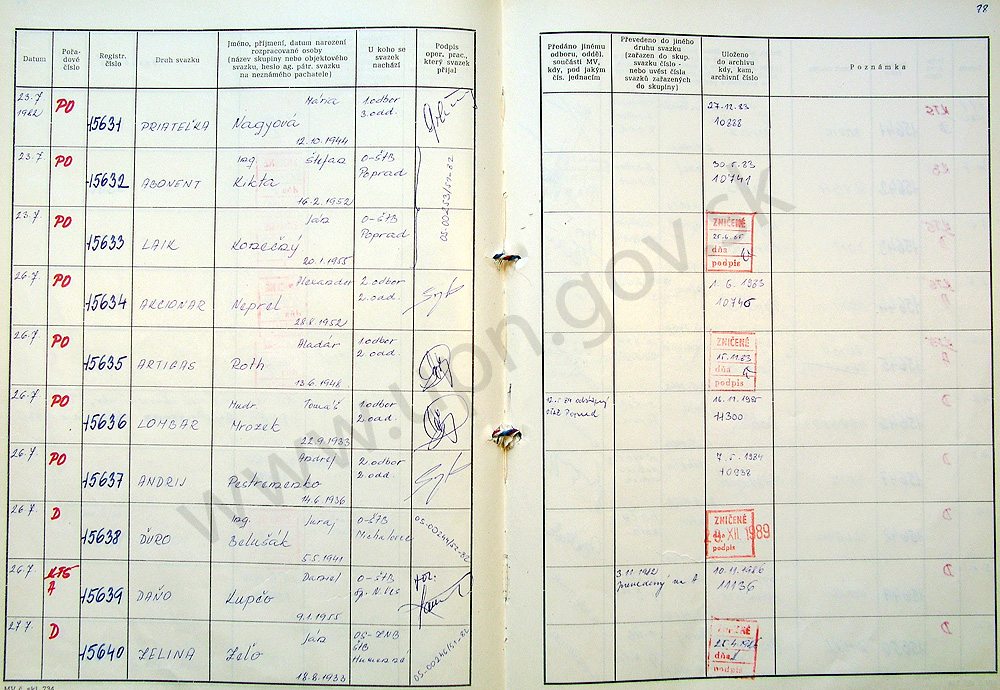 28
Datum
Pořa-
dové
číslo
Registr.
číslo
Druh svazku
Jméno, příjmení, datum narození
rozpracované osoby
(název skupiny nebo objektového
svazku, heslo ag. pátr. svazku
na neznámého pachatele)
U koho se
svazek
nachází
Podpis
oper. prac.,
který svazek
přijal
Předáno jinému
odboru, odděl.
součásti MV,
kdy, pod jakým
čís. jednacím
Převedeno do jiného
druhu svazku
(zařazen do skup.
svazku číslo -
nebo uvést čísla
svazků zařazených
do skupiny)
Uloženo
do archivu
kdy, kam,
archivní číslo
Poznámka
23.7
1982
PO
15631
PRIATEĽKA
Mária
Nagyová
12.10.1944
1.odbor
3.odd.
27.12.83
10888
23.7.
PO
15632
ABONENT
Ing. Štefan
Kikta
16.2.1952
O-ŠtB
Poprad
05-00253/52-82
30.5.83
10741
23.7.
PO
15633
LAIK
Ján
Konečný
20.1.1955
O-ŠtB
Poprad
ZNIČENÉ
dňa
podpis
26.7.
PO
15634
AKCIONAR
Alexander
Neprel
28.8.1952
2.odbor
2.odd.
1.6.1983
10746
26.7.
PO
15635
ARTIGAS
Aladár
Roth
13.6.1948
1.odbor
2.odd
ZNIČENÉ
15.11.83
dňa
podpis
26.7.
PO
15636
LOMBAR
Mudr. Tomáš
Mrozek
22.9.1933
1.odbor
2.odd
16.11.1985
11300
26.7.
PO
15637
ANDRIJ
Andrej
Pestremenko
14.6.1936
2.odbor
2.odd.
7.5.1984
10938
26.7.
D
15638
ĎURO
Ing. Juraj
Belušák
5.5.1941
O-ŠtB
Michalovce
05-00244/52-82
ZNIČENÉ
XII. 1989
podpis
26.7.
KTS
A
15639
DAŇO
Daniel
Kupčo
9.1.1955
O-ŠtB
Sp. N.Ves
3.11.1982
prevedený na A
10.11.1986
11136
27.7.
D
15640
ZELINA
Ján
Zeľo
18.8.1933
OS-ZNB
ŠtB
Humenné
05-00246/51-82
dňa
podpis
www.upn.gov.sk